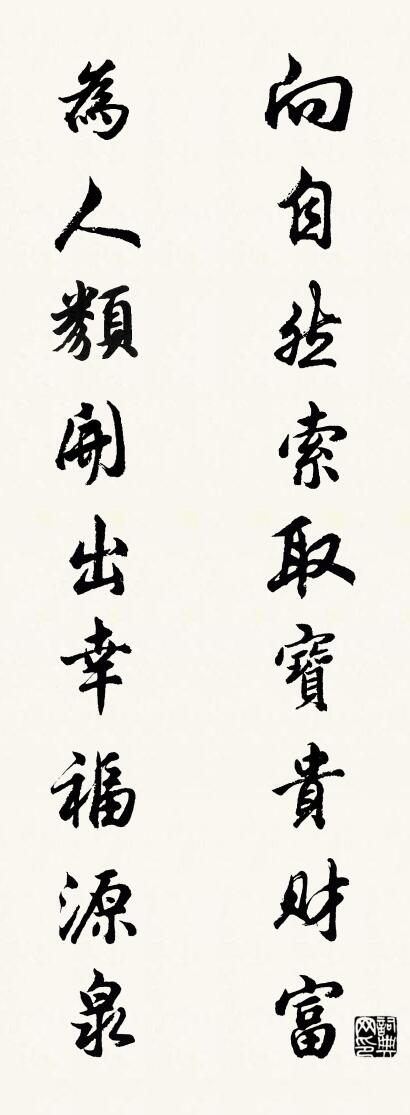 向自然索取寶貴財富
為人類開出幸福源泉
詞典
网印